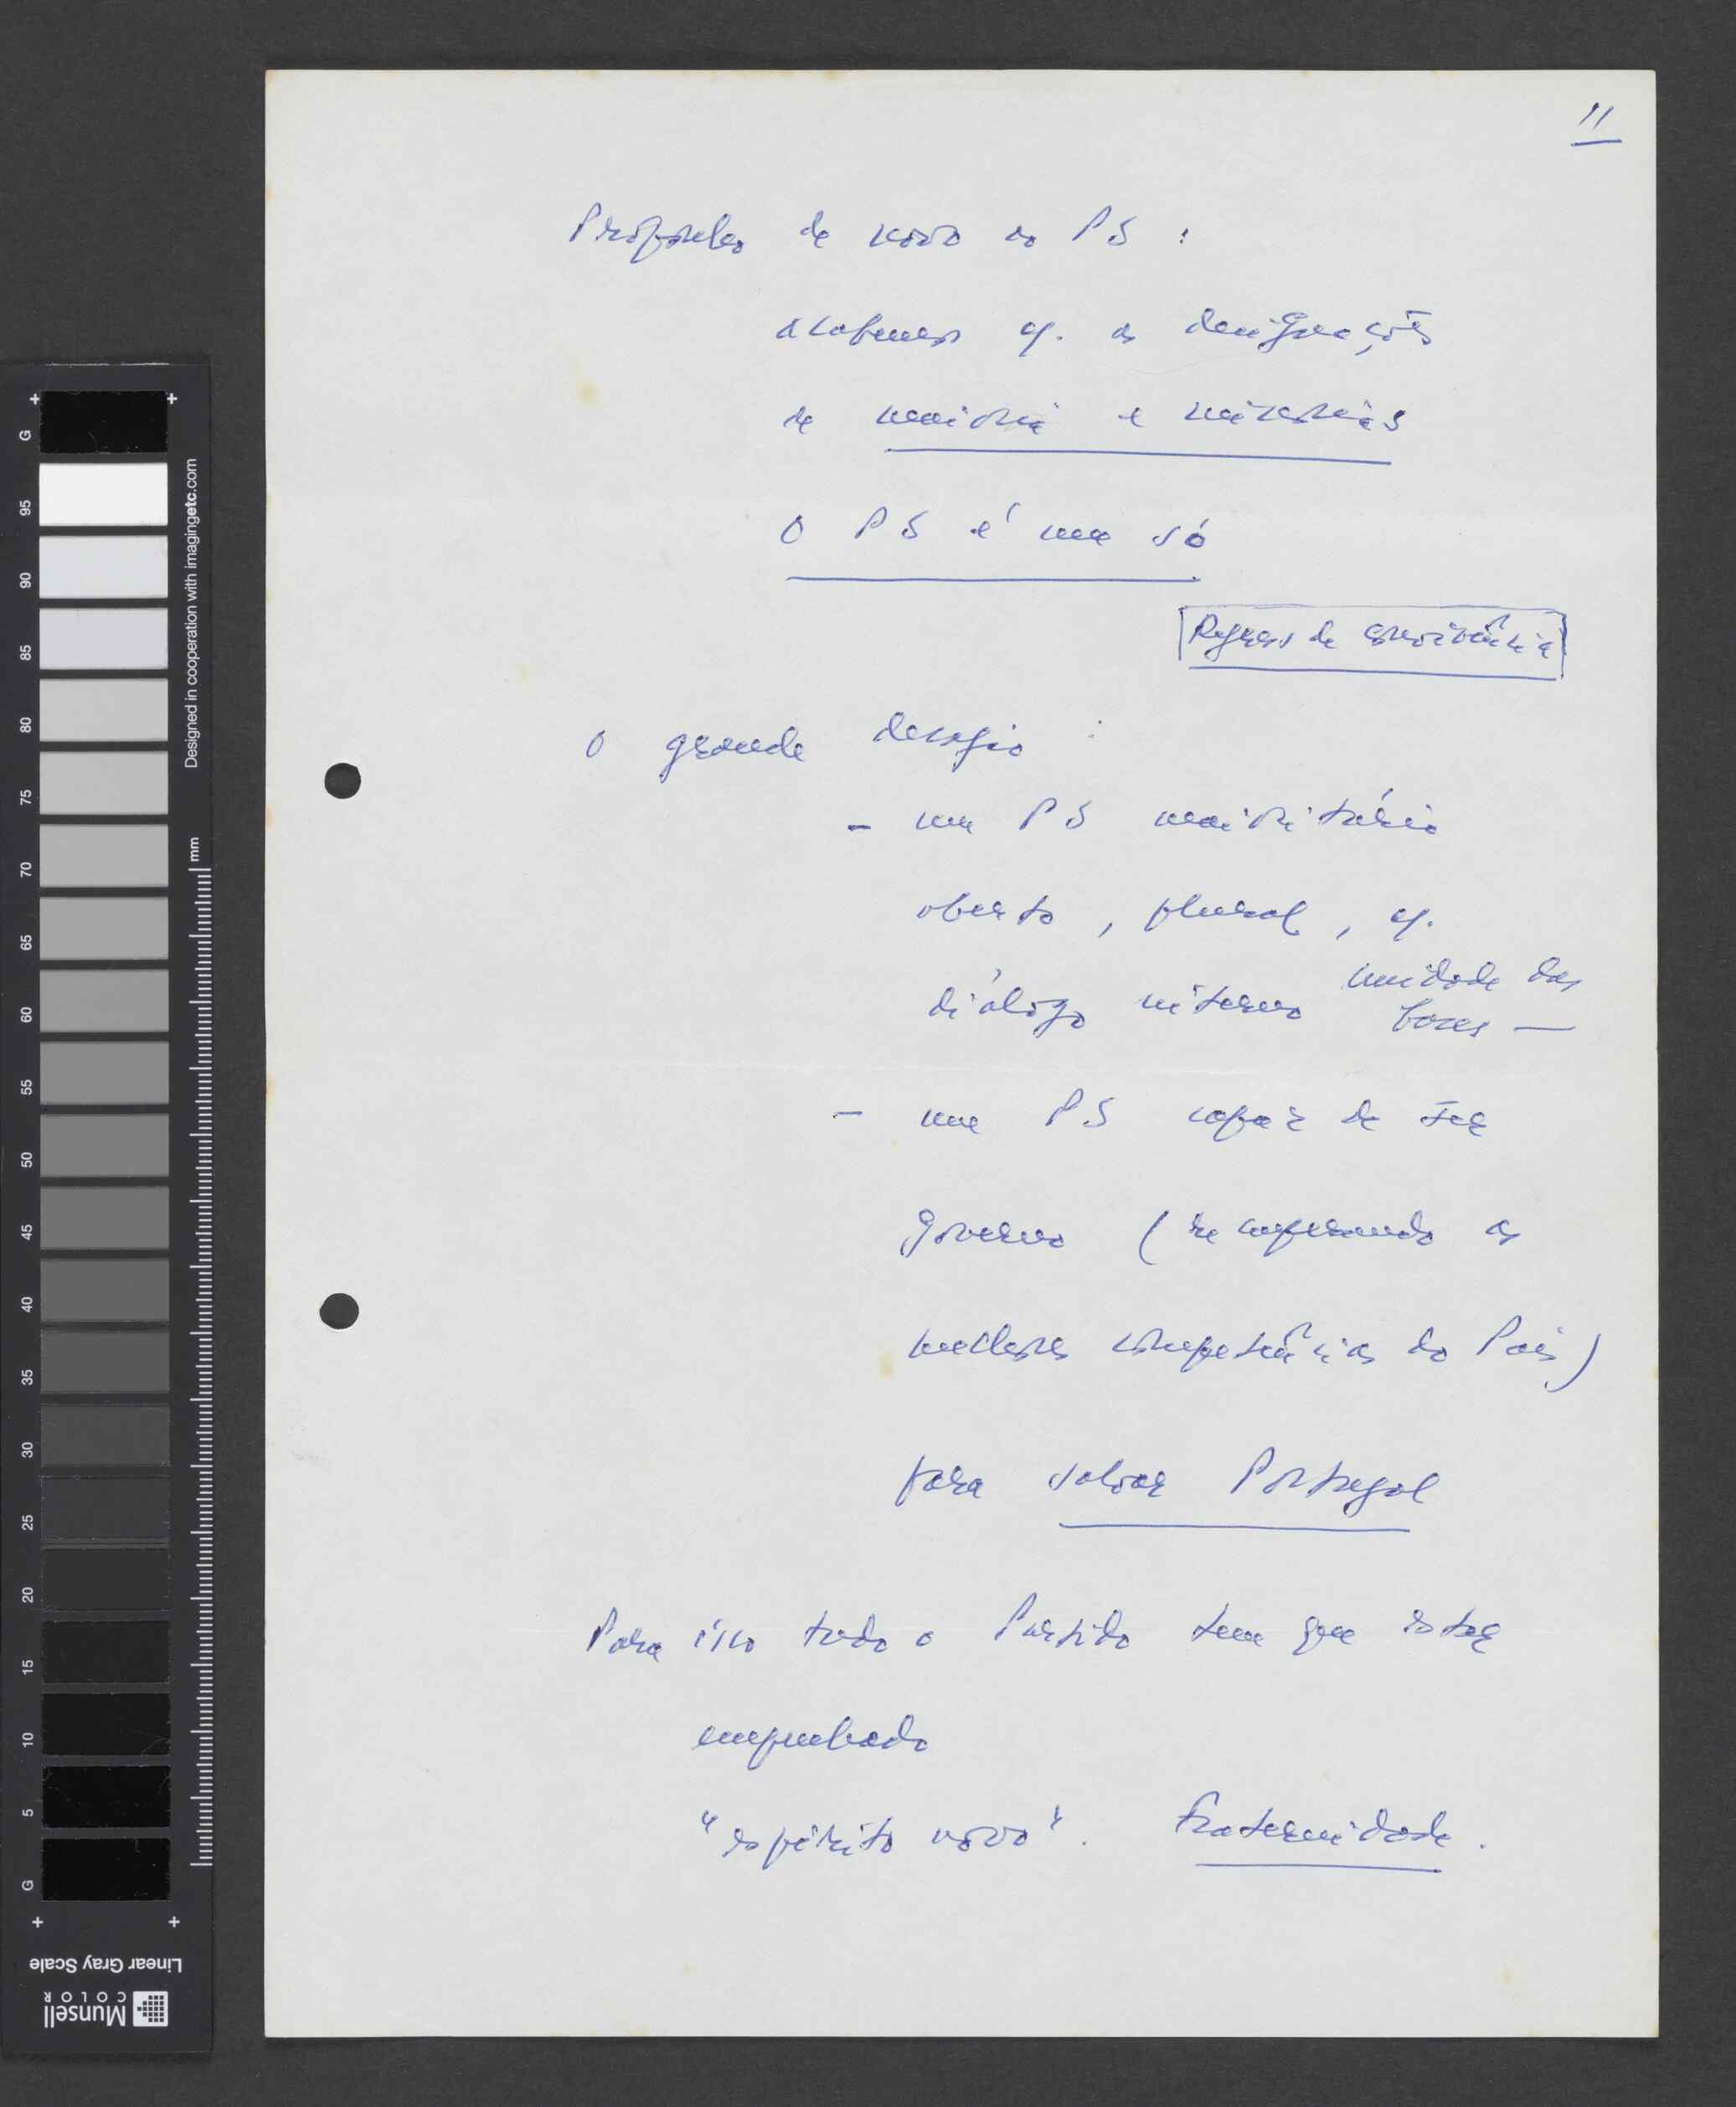 11
Proponho de novo ao PS :
acabemos c/. as designações
de maioria e minorias
O PS é um só
Regras de convivência
O grande desafio :
– um PS maioritário
aberto, plural, c/.
diálogo interno unidade das
bases —
– um PS capaz de ser
Governo (recuperando as
melhores competências do País)
para salvar Portugal
Para isso todo o Partido tem que estar
empenhado
"espírito novo". Fraternidade.
G
95
90
85
80
75
70
65
60
55
50
45
40
35
30
25
20
15
10
5
G
mm
Designed in cooperation with imagingetc.com
Linear Gray Scale
Munsell
COLOR